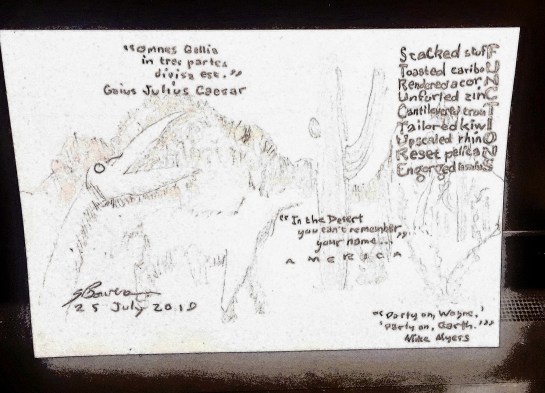 "Omnes Gallia
in tres partes
divisa est."
Gaius Julius Caesar
Stacked stufF
Toasted cariboU
Rendered acorN
Unfurled zinC
Cantilevered trouT
Tailored kiwI
Upscaled rhinO
Reset pelicaN
Engorged
"In the Desert
you can't remember
your name..."
AMERICA
25 July 2018
"'Party on, Wayne.'
'Party on, Garth.'"
Mike Myers